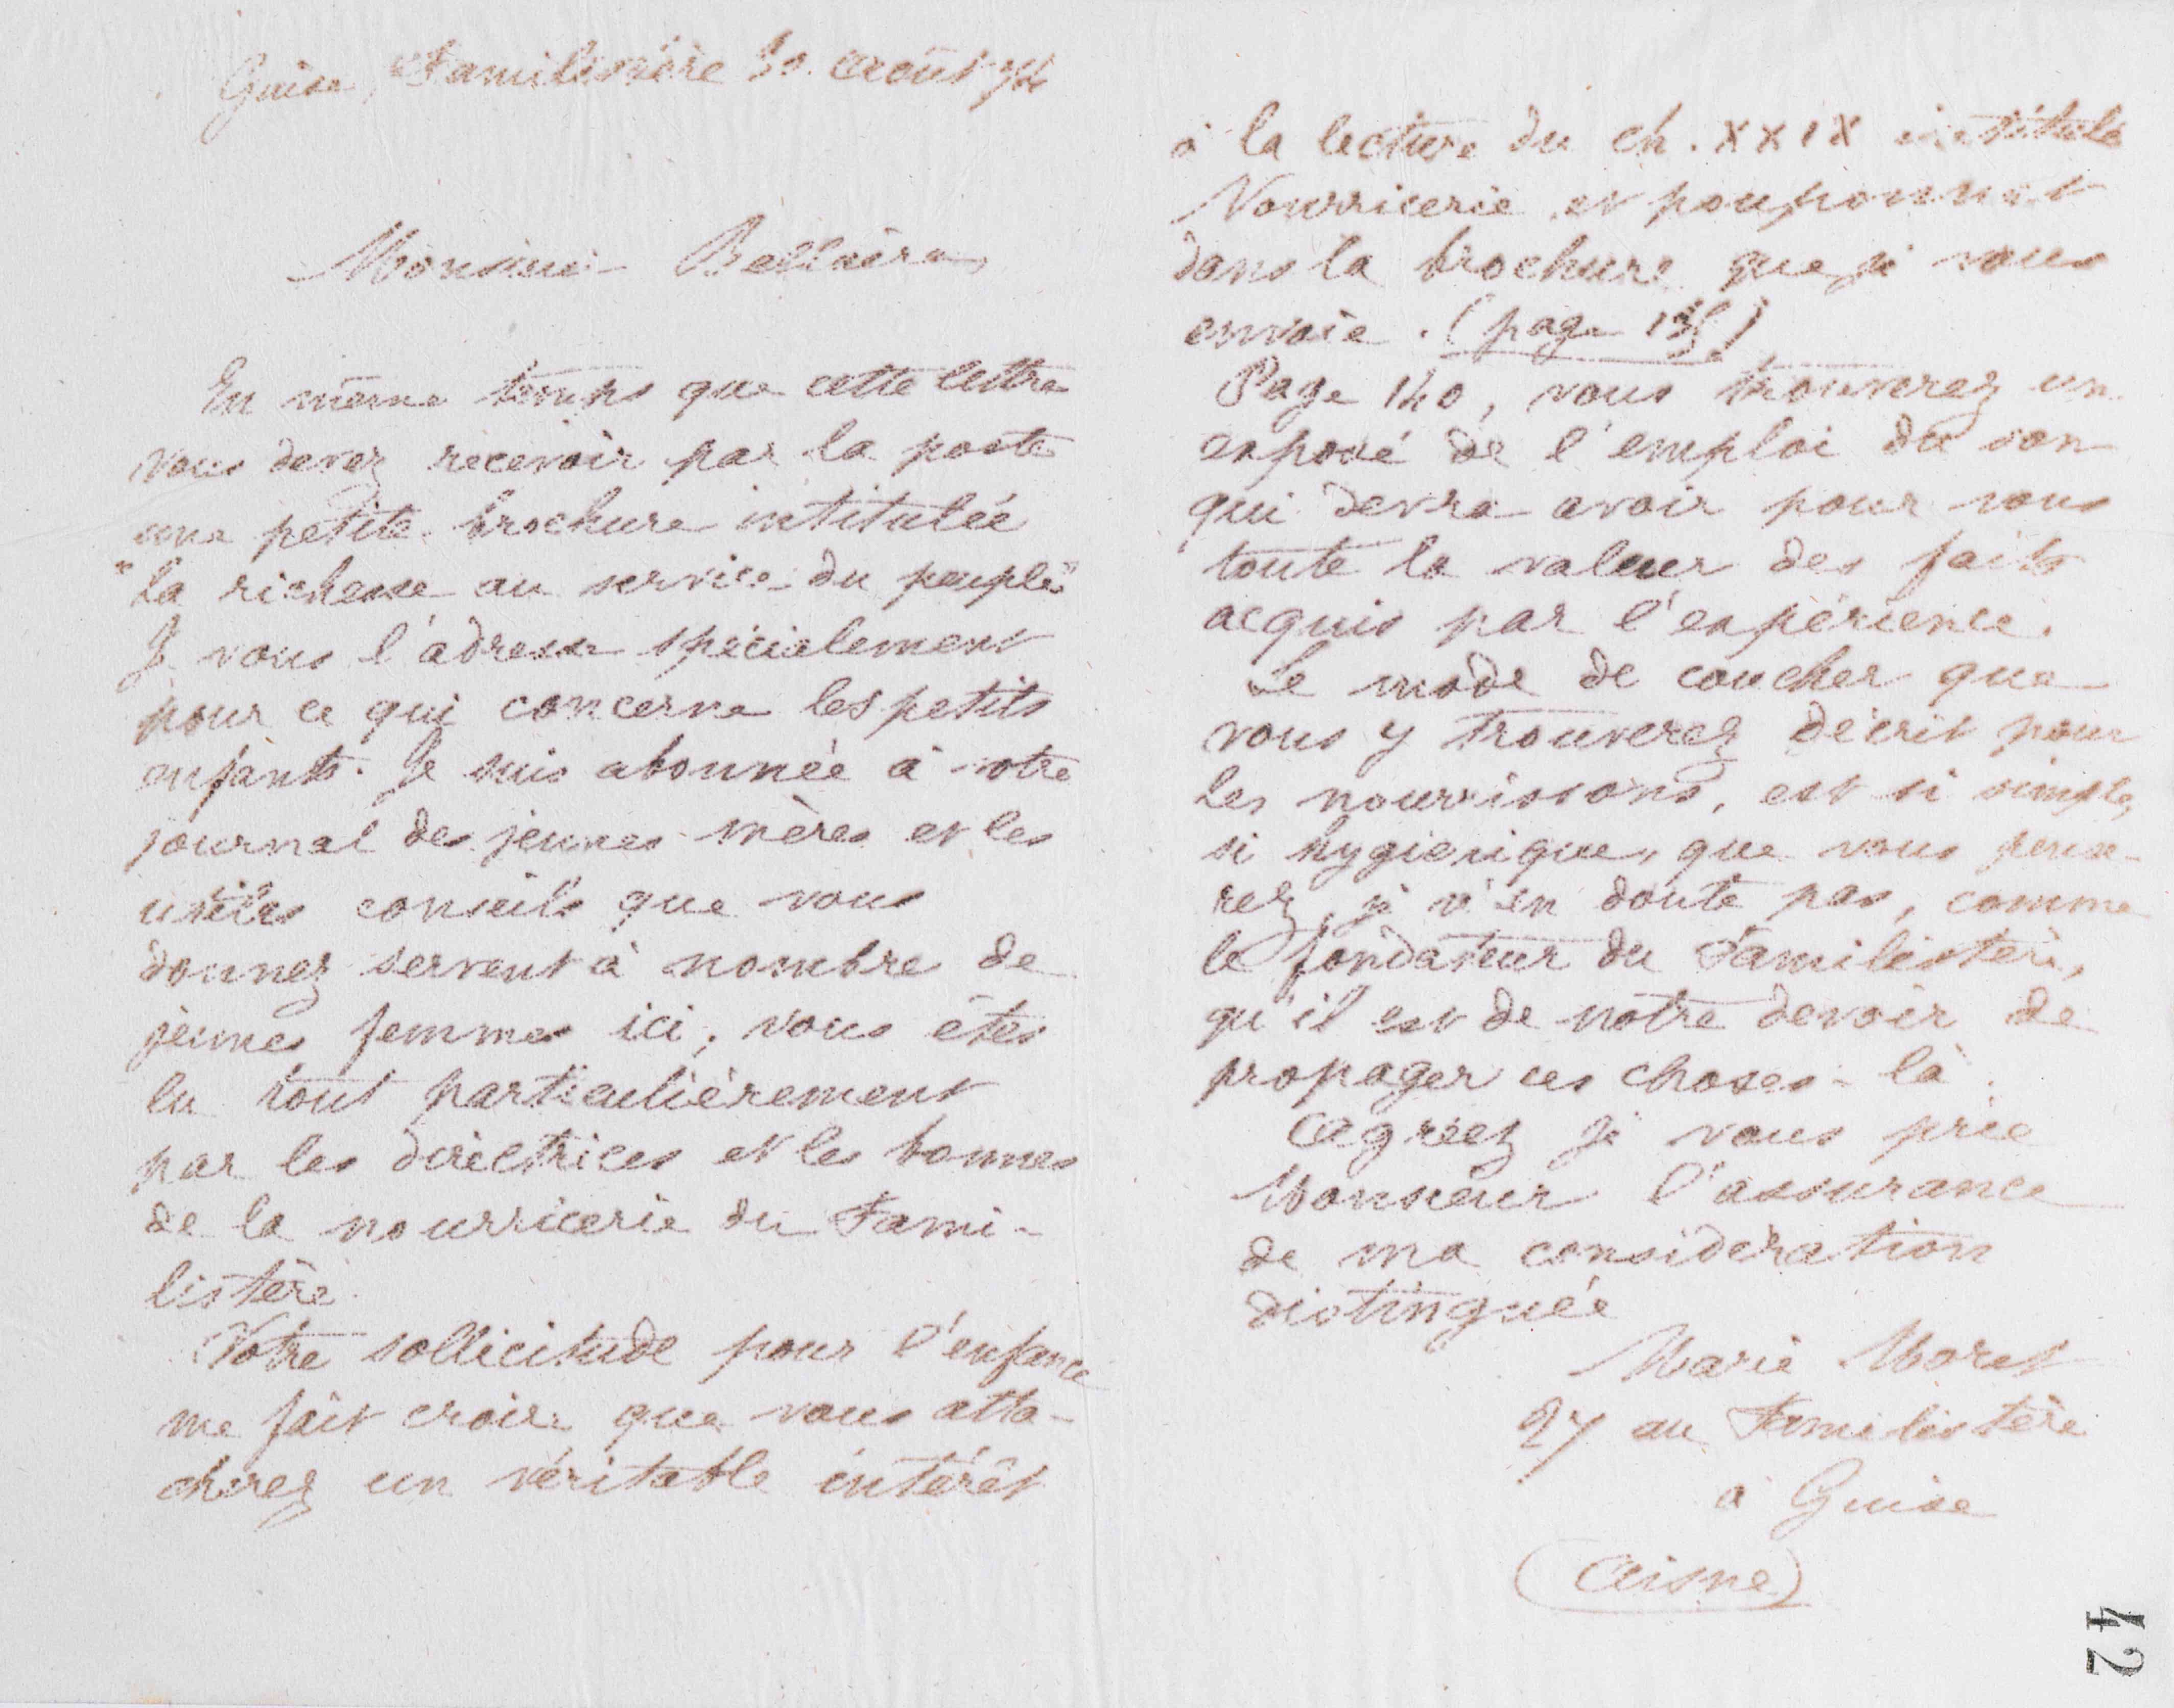 Guise, Familistère 30 Août 74
Monsieur
En même temps que cette lettre
vous devez recevoir par la poste
une petite brochure intitulée
"La richesse au service du peuple"
Je vous l'adresse spécialement
pour ce qui concerne les petits
enfants. Je suis abonnée à votre
journal des jeunes mères et les
utiles conseils que vous
donnez servent à nombre de
jeunes femmes ici; vous êtes
lu tout particulièrement
par les directrices et les bonnes
de la nourricerie du Fami-
listère.
Votre sollicitude pour l'enfance
me fait croire que vous atta-
cherez un véritable intérêt
à la lecture du ch. XXIX intitulé
Nourricerie et pouponnat
dans la brochure que je vous
envoie. (page 135)
Page 140, vous trouverez un
exposé de l'emploi du son
qui devra avoir pour vous
toute la valeur des faits
acquis par l'expérience.
Le mode de coucher que
vous y trouverez décrit pour
les nourrissons, est si simple,
si hygiénique, que vous pense-
rez, je n'en doute pas, comme
le fondateur du Familistère,
qu'il est de notre devoir de
propager ces choses-là.
Agréez je vous prie
Monsieur l'assurance
de ma considération
distinguée
Marie Moret
27 au Familistère
à Guise
(Aisne)
42